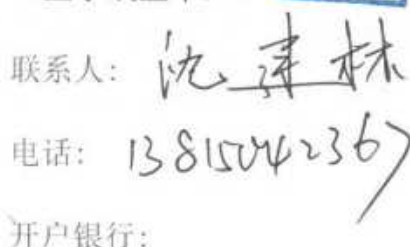 联系人: 沈建林
电话: 13815042367
开户银行: